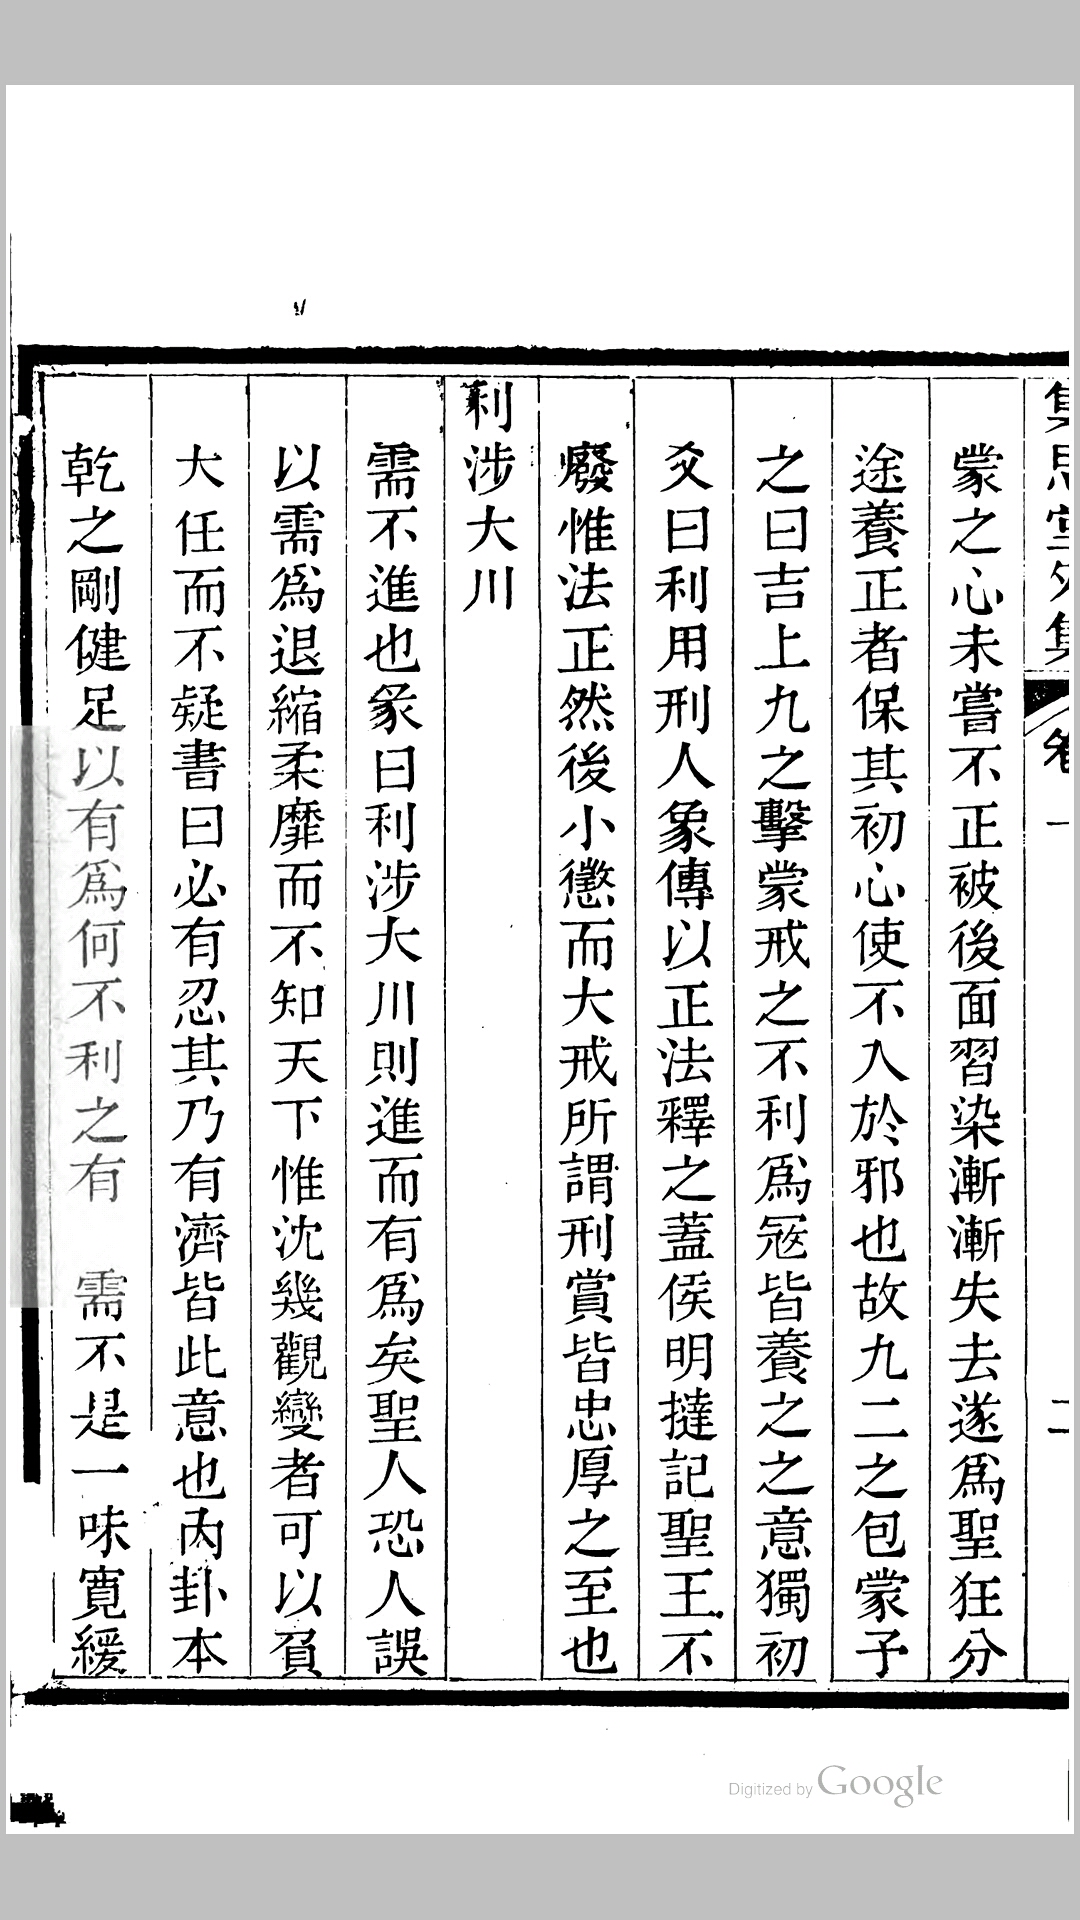 蒙之心未嘗不正被後面習染漸漸失去遂爲聖狂分
途養正者保其初心使不入於邪也故九二之包蒙子
之曰吉上九之擊蒙戒之不利爲寇皆養之之意獨初
爻曰利用刑人象傳以正法釋之蓋侯明撻記聖王不
廢惟法正然後小懲而大戒所謂刑賞皆忠厚之至也
利涉大川
需不進也彖曰利涉大川則進而有爲矣聖人恐人誤
以需爲退縮柔靡而不知天下惟沈幾觀變者可以負
大任而不疑書曰必有忍其乃有濟皆此意也內卦本
乾之剛健足以有爲何不利之有 需不是一味寬緩
Digitized by Google